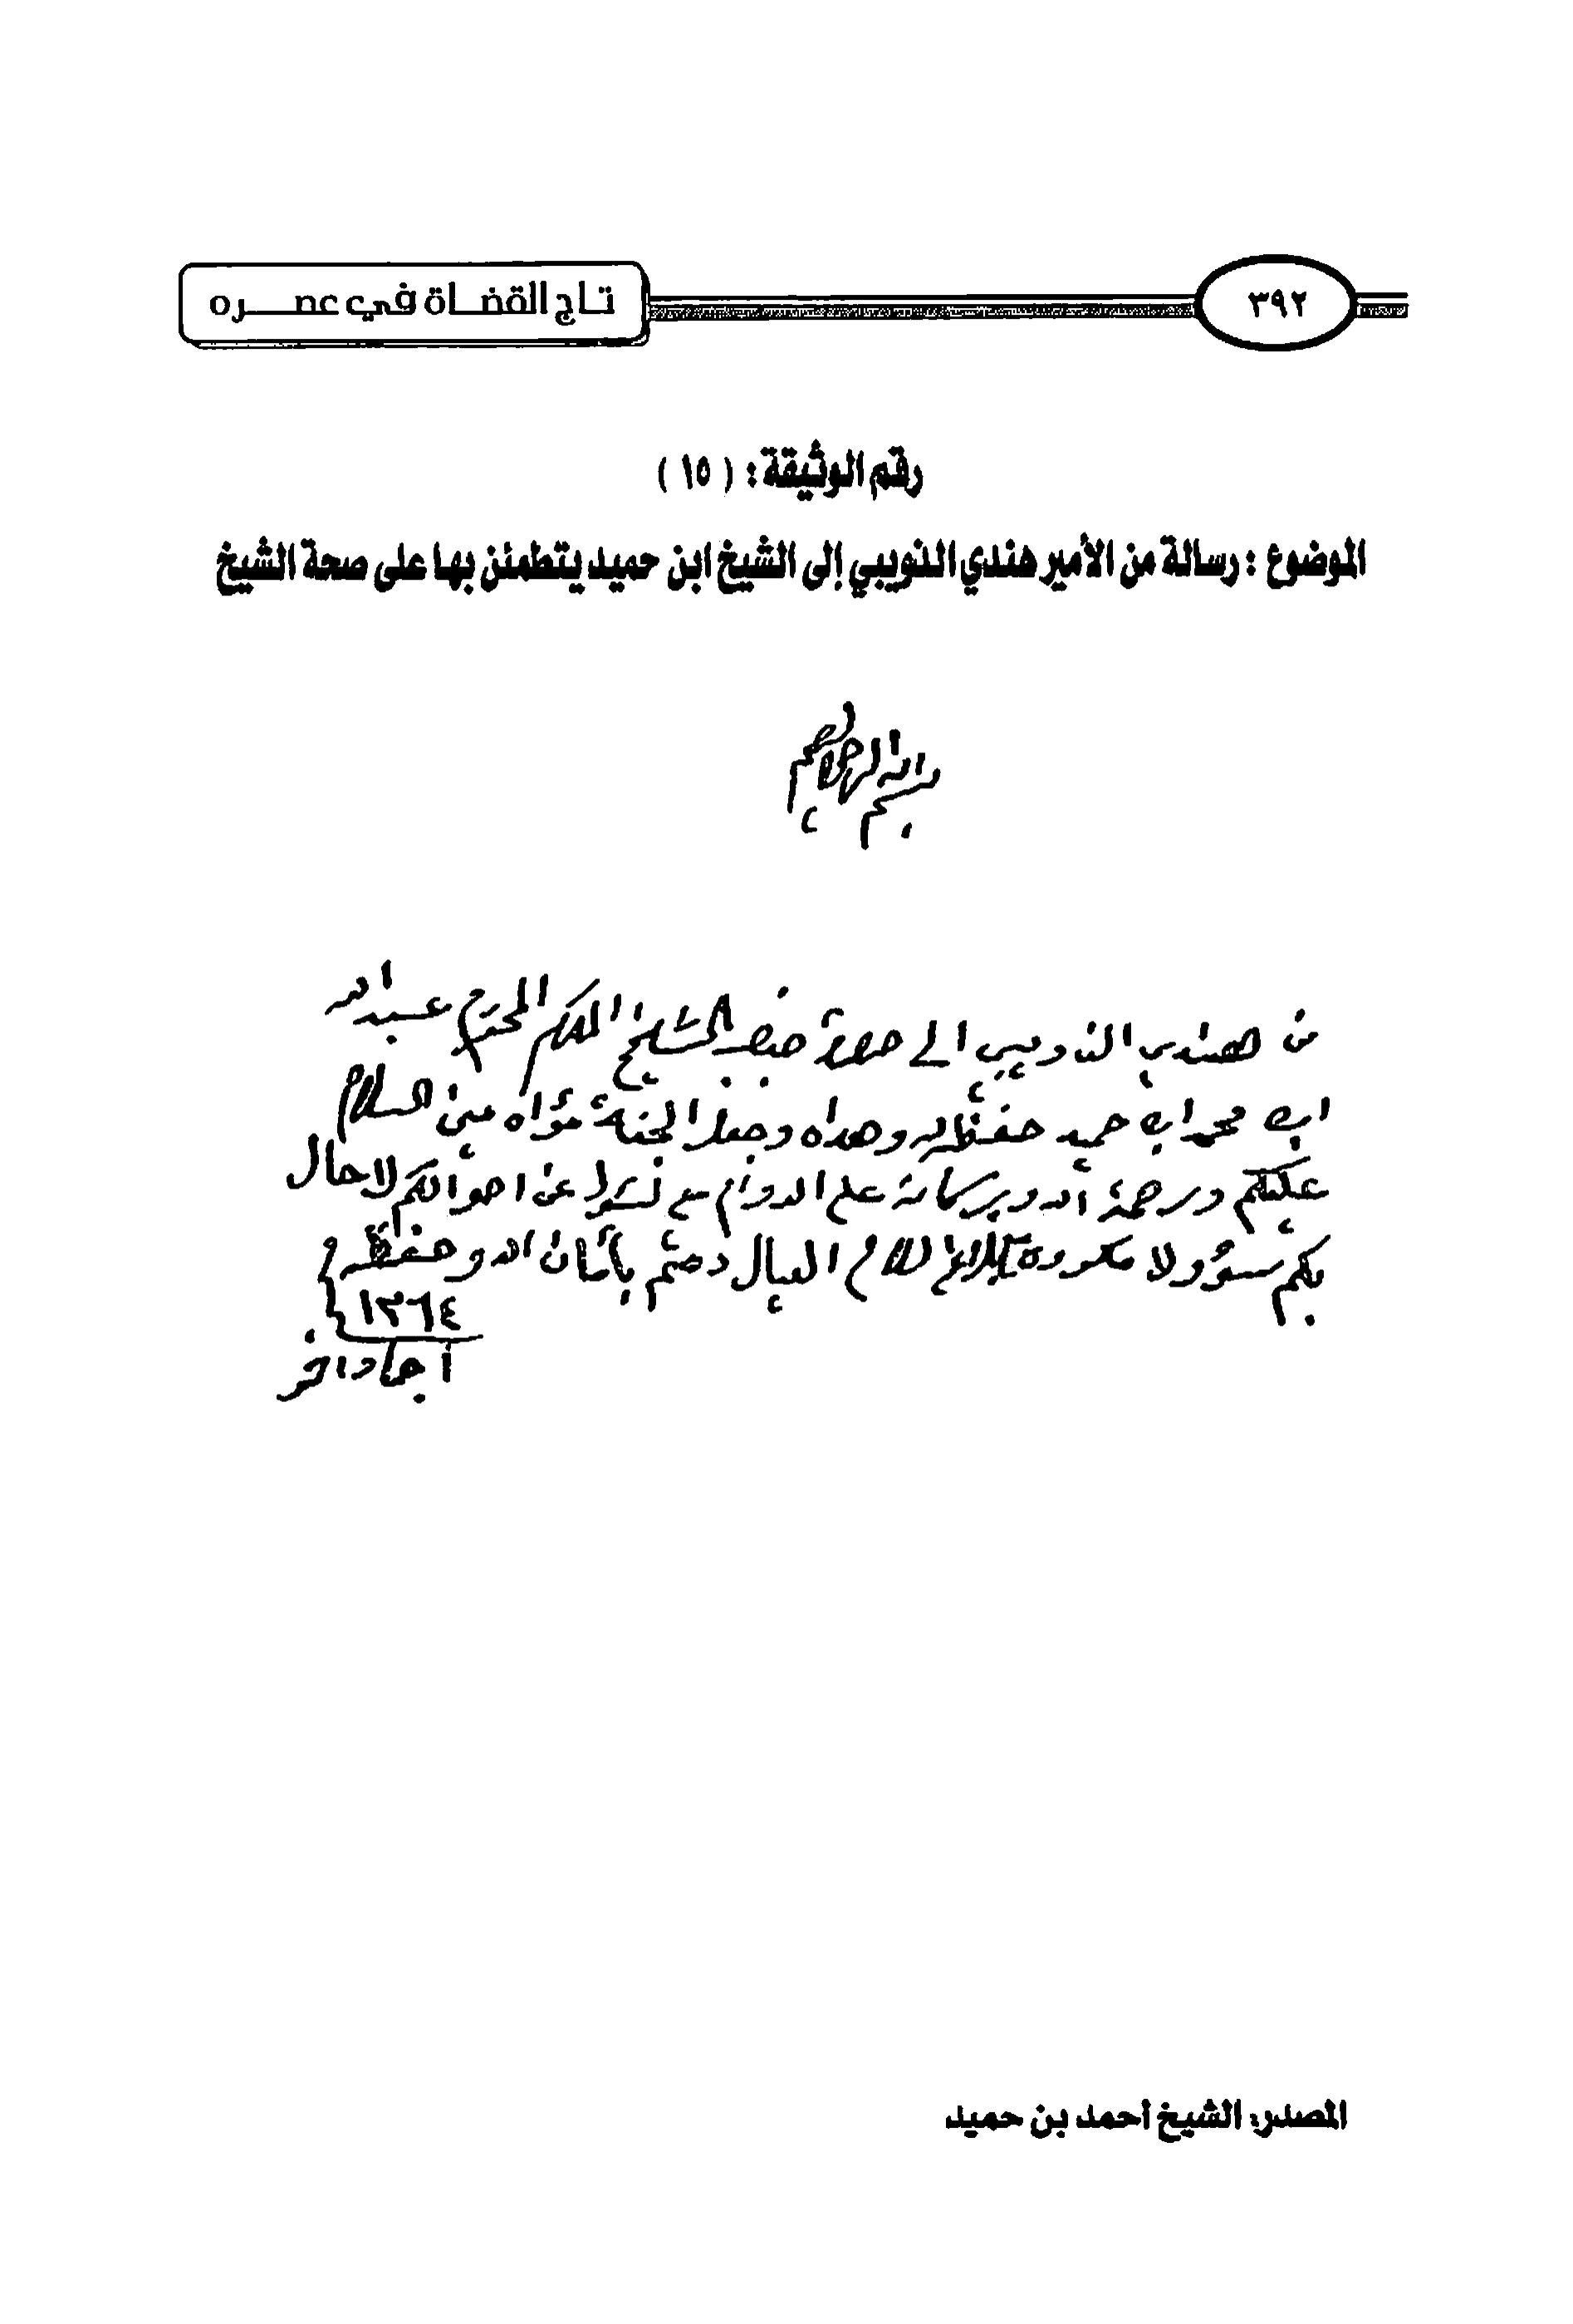 ٣٩٢
تاج القضاة في عصره
رقم الوثيقة : ( ١٥ )
الموضوع : رسالة من الأمير هندي الذويبي إلى الشيخ ابن حميد يتطمئن بها على صحة الشيخ
بسم الله الرحمن الرحيم
من هندي الذويبي الى حضرة الشيخ المكرم المحترم عبدالله
ابن محمد ابن حميد حفظه الله وهداه وجعل الجنة مؤاه آمين السلام
عليكم ورحمة الله وبركاته على الدوام مع السؤال عن احوالكم لا حال
بكم سوؤ ولا مكروه السلام العيال دمتم بأمان الله وحفظه
١٣٦٤
١ جماد اخر
المصدر: الشيخ أحمد بن حميد